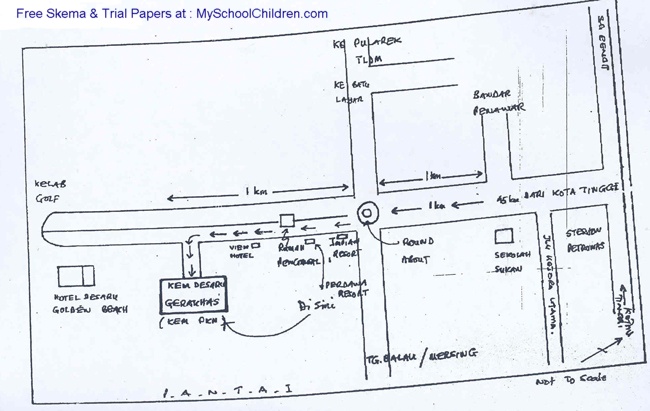 Free Skema & Trial Papers at : MySchoolChildren.com
KE PULAREK
TLDM
KE BATU
LAYAR
BANDAR
PENAWAR
SG RENGIT
KELAB
GOLF
1 km
1 km
1 km
45 km DARI KOTA TINGGI
VIEW
HOTEL
RUMAH
PENGAWAL
INDIAH
RESORT
PERDANA
RESORT
ROUND
ABOUT
SEKOLAH
SUKAN
STESEN
PETRONAS
JLN KOTA
UTAMA.
KOTA
TINGGI
HOTEL DESARU
GOLDEN BEACH
KEM DESARU
GERAKHAS
(KEM PKN)
Di Sini
TG. BALAU / MERSING
P. A. N. T. A. I
Not To Scale